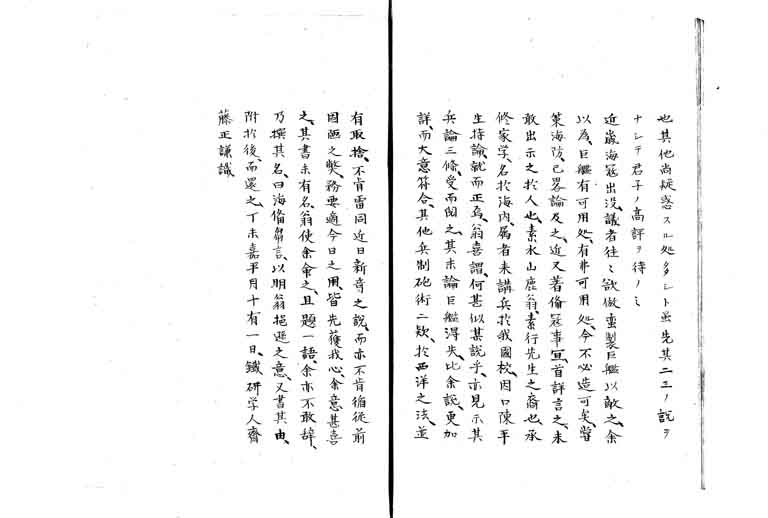 也其他尚疑惑スル処多シト虽先其二三ノ説ヲ
ナシテ君子ノ高評ヲ待ノミ
近歳海寇出没、議者往〻欲倣蛮製巨艦以敵之、余
以為、巨艦有可用処、有非可用処、今不必造可矣、嘗
策海防、已畧論及之、近又著備寇事宜、首詳言之、未
敢出示之於人也、素水山鹿翁、素行先生之裔也、承
修家学、名於海内、属者来講兵於我國校、因口陳平
生持論、就而正焉、翁喜謂、何甚似其説乎、亦見示其
兵論三條、受而閲之、其末論巨艦得失、比余説、更加
詳、而大意符合、其他兵制砲術二欵、於西洋之法、並
有取捨、不肯雷同近日新奇之説、而亦不肯循従前
固陋之弊、務要適今日之用、皆先獲我心、余意甚喜
之、其書未有名、翁使余命之、且題一語、余亦不敢辞、
乃撰其名、曰海備芻言、以明翁挹遜之意、又書其由、
附於後、而還之、丁未嘉平月十有一日、鐵研学人齋
藤正謙識